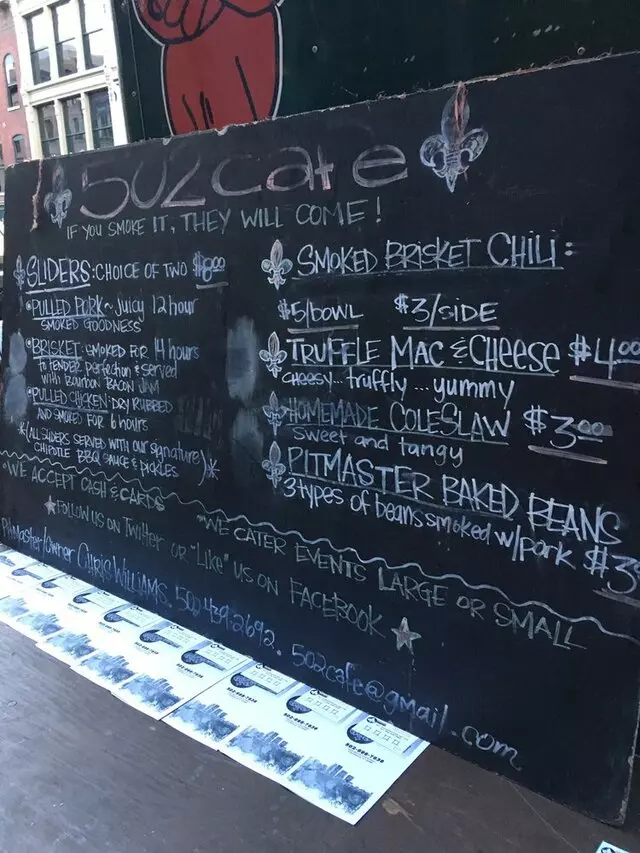 502cafe
IF YOU SMOKE IT, THEY WILL COME!
SLIDERS: CHOICE OF TWO $8.00
• PULLED PORK ~ JUICY 12 hour
SMOKED GOODNESS
• BRISKET: SMOKED FOR 14 hours
to TENDER perfection & served
with Bourbon BACON JAM
• PULLED CHICKEN: DRY RUBBED
AND SMOKED FOR 6 hours
*(ALL SLIDERS SERVED WITH OUR SIGNATURE
CHIPOTLE BBQ SAUCE & PICKLES)*
SMOKED BRISKET CHILI:
$5/BOWL $3/SIDE
TRUFFLE MAC & CHEESE $4.00
CHEESY... truffly ... yummy
HOMEMADE COLESLAW $3.00
sweet and tangy
PITMASTER BAKED BEANS
3 types of beans smoked w/pork $3
*WE ACCEPT CASH & CARDS
*WE CATER EVENTS LARGE OR SMALL
FOLLOW US ON Twitter OR "LIKE" US ON FACEBOOK
PitMaster/Owner CHRIS WILLIAMS. 502-439-2692. 502cafe@gmail.com